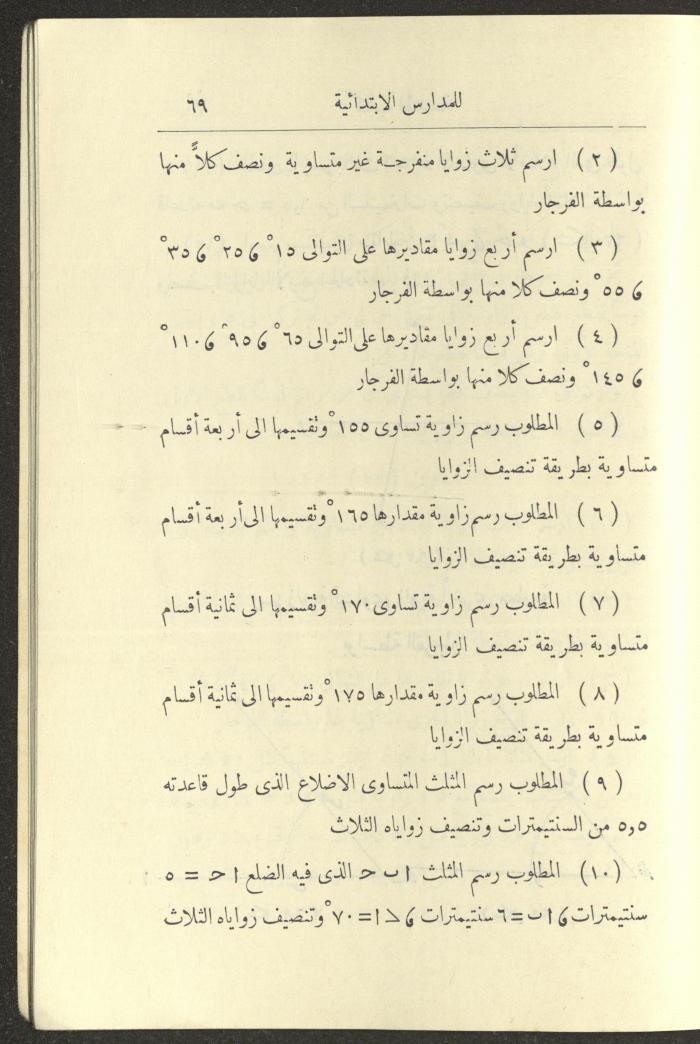 للمدارس الابتدائية ٦٩
( ٢ ) ارسم ثلاث زوايا منفرجة غير متساوية ونصف كلاًّ منها
بواسطة الفرجار
( ٣ ) ارسم أربع زوايا مقاديرها على التوالى ١٥° ، ٢٥° ، ٣٥°
، ٥٥° ونصف كلا منها بواسطة الفرجار
( ٤ ) ارسم أربع زوايا مقاديرها على التوالى ٦٥° ، ٩٥° ، ١١٠°
، ١٤٥° ونصف كلا منها بواسطة الفرجار
( ٥ ) المطلوب رسم زاوية تساوى ١٥٥° وتقسيمها الى أربعة أقسام
متساوية بطريقة تنصيف الزوايا
( ٦ ) المطلوب رسم زاوية مقدارها ١٦٥° وتقسيمها الى أربعة أقسام
متساوية بطريقة تنصيف الزوايا
( ٧ ) المطلوب رسم زاوية تساوى ١٧٠° وتقسيمها الى ثمانية أقسام
متساوية بطريقة تنصيف الزوايا
( ٨ ) المطلوب رسم زاوية مقدارها ١٧٥° وتقسيمها الى ثمانية أقسام
متساوية بطريقة تنصيف الزوايا
( ٩ ) المطلوب رسم المثلث المتساوى الاضلاع الذى طول قاعدته
٥٫٥ من السنتيمترات وتنصيف زواياه الثلاث
( ١٠ ) المطلوب رسم المثلث ا ب ح الذى فيه الضلع ا ح = ٥
سنتيمترات ، ا ب = ٦ سنتيمترات ، > ا = ٧٠° وتنصيف زواياه الثلاث